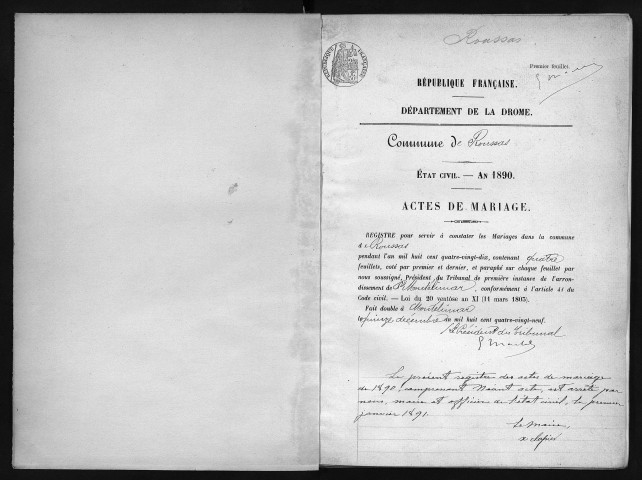 Roussas
Premier feuillet.
RÉPUBLIQUE FRANÇAISE.
DÉPARTEMENT DE LA DROME.
Commune de Roussas
ÉTAT CIVIL. — AN 1890.
ACTES DE MARIAGE.
REGISTRE pour servir à constater les Mariages dans la commune
de Roussas
pendant l'an mil huit cent quatre-vingt-dix, contenant quatre
feuillets, coté par premier et dernier, et paraphé sur chaque feuillet par
nous soussigné, Président du Tribunal de première instance de l'arron-
dissement de Montélimar, conformément à l'article 41 du
Code civil. — Loi du 20 ventôse an XI (11 mars 1803).
Fait double à Montélimar
le quinze décembre mil huit cent quatre-vingt-neuf.
Le Président du Tribunal
Le présent registre des actes de mariage
de 1890, comprenant Néant acte, est arrêté par
nous, maire et officier de l'état civil, le premier
janvier 1891.
Le Maire